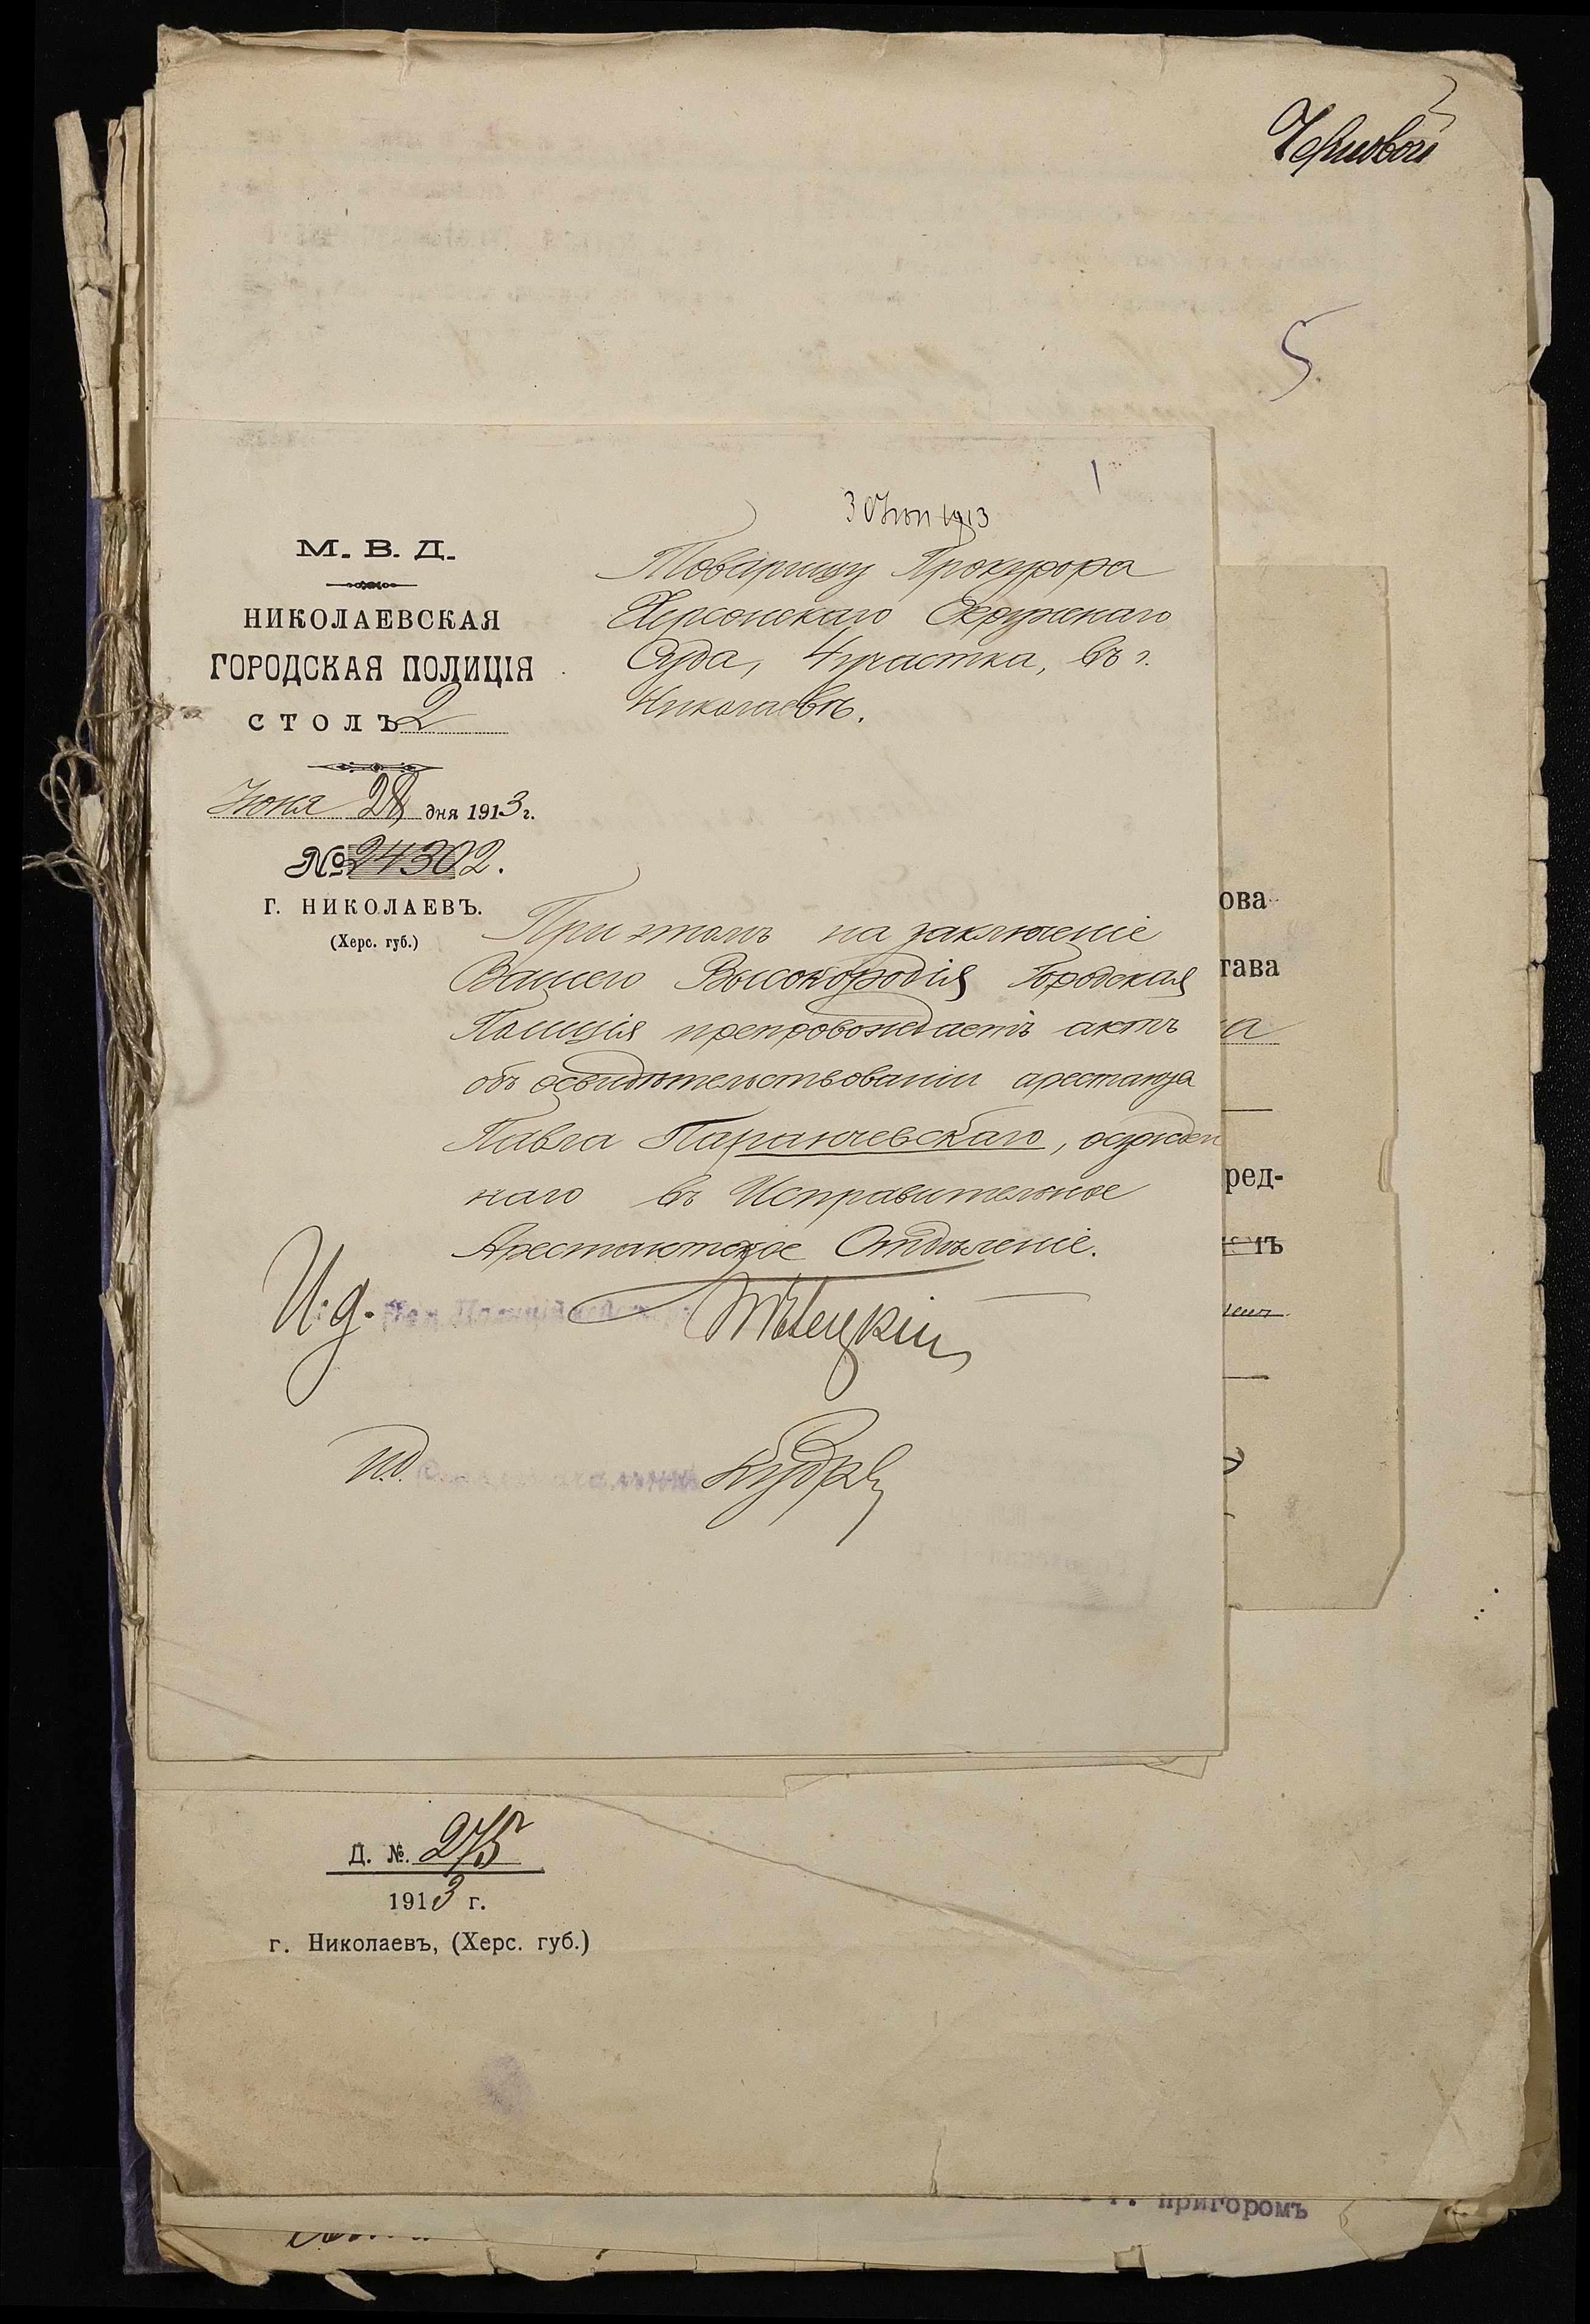 Черновой
5.
1
30 Iюн 1913
М. В. Д.
НИКОЛАЕВСКАЯ
ГОРОДСКАЯ ПОЛИЦІЯ
СТОЛЪ 2
Iюня 28 дня 1913 г.
№ 24302.
Г. НИКОЛАЕВЪ.
(Херс. губ.)
Товарищу Прокурора
Херсонскаго Окружнаго
Суда, 4 участка, въ г.
Николаевѣ.
При этомъ на заключеніе
Вашего Высокородія Городская
Полиція препровождаетъ актъ
объ освидѣтельствованіи арестанта
Павла Паранчевскаго, осужден
наго въ Исправительное
Арестантское Отдѣленіе.
И. д.
И. д.
ова-
тава
а
ред-
Д. №. 275
1913 г.
г. Николаевъ, (Херс. губ.)
пригоромъ